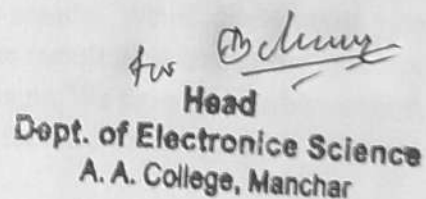 for
Head
Dept. of Electronice Science
A. A. College, Manchar